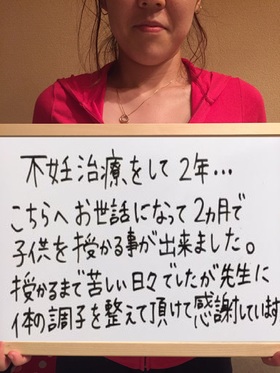 不妊治療をして2年…
こちらへお世話になって2ヵ月で
子供を授かる事が出来ました。
授かるまで苦しい日々でしたが先生に
体の調子を整えて頂けて感謝しています